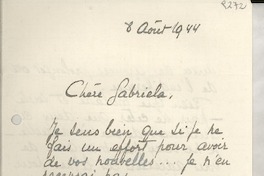 2272
8 Août 1944
Chère Gabriela,
Je sens bien que si je ne
fais un effort pour avoir
de vos nouvelles... je n'en
recevrai pas